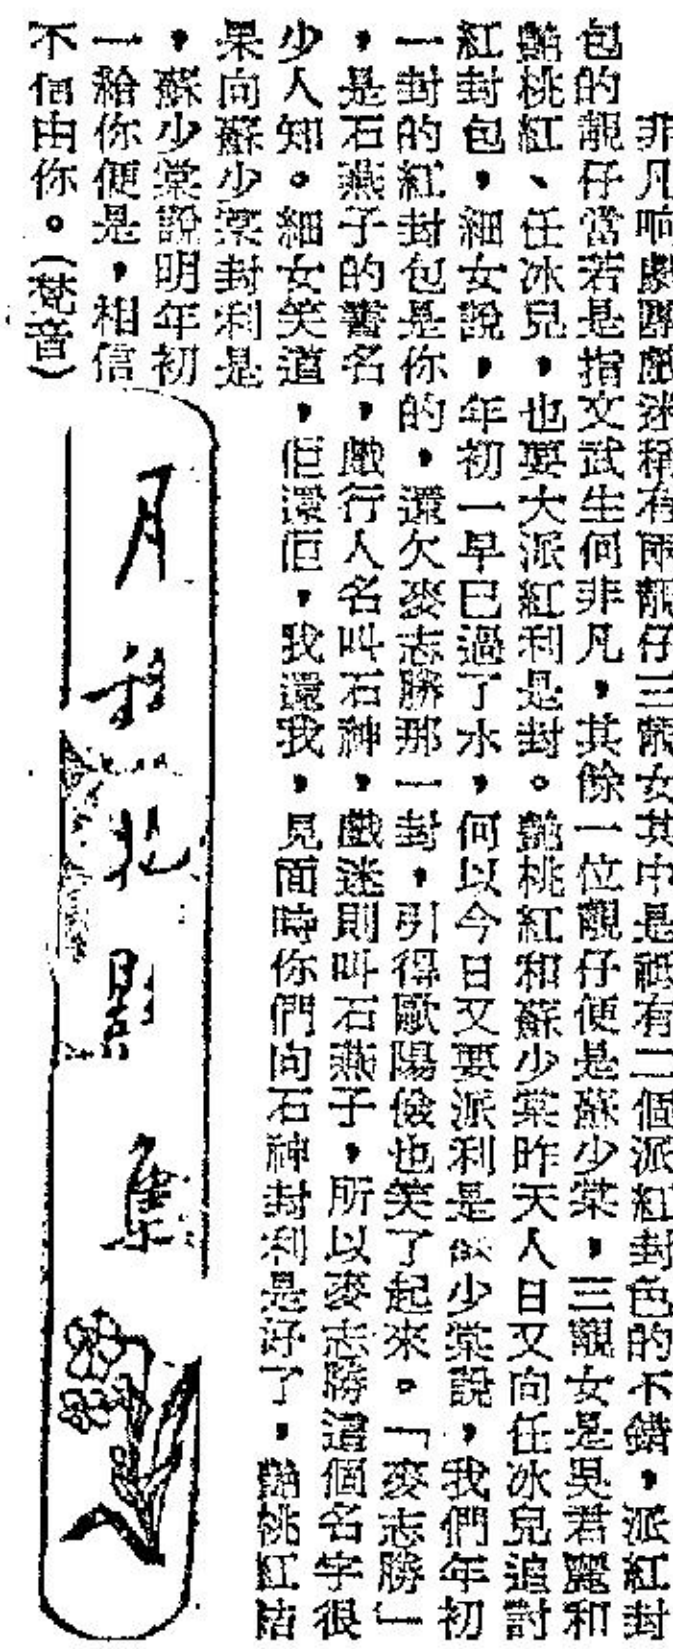 非凡响劇團戲迷稱有兩靚仔三靚女其中是祗有二個派紅封包的不錯，派紅封
包的靚仔當若是指文武生何非凡，其餘一位靚仔便是蘇少棠，三靚女是吳君麗和
艷桃紅、任冰兒，也要大派紅利是封。艷桃紅和蘇少棠昨天人日又向任冰兒追討
紅封包，細女說，年初一早已過了水，何以今日又要派利是 少棠說，我們年初
一封的紅封包是你的，還欠麥志勝那一封，引得歐陽儉也笑了起來。「麥志勝」
，是石燕子的舊名，戲行人名叫石神，戲迷則叫石燕子，所以麥志勝這個名字很
少人知。細女笑道，佢還佢，我還我，見面時你們向石神封利是好了，艷桃紅詰
果向蘇少棠封利是
，蘇少棠說明年初
一給你便是，相信
不信由你。（梵音）
月移花影集